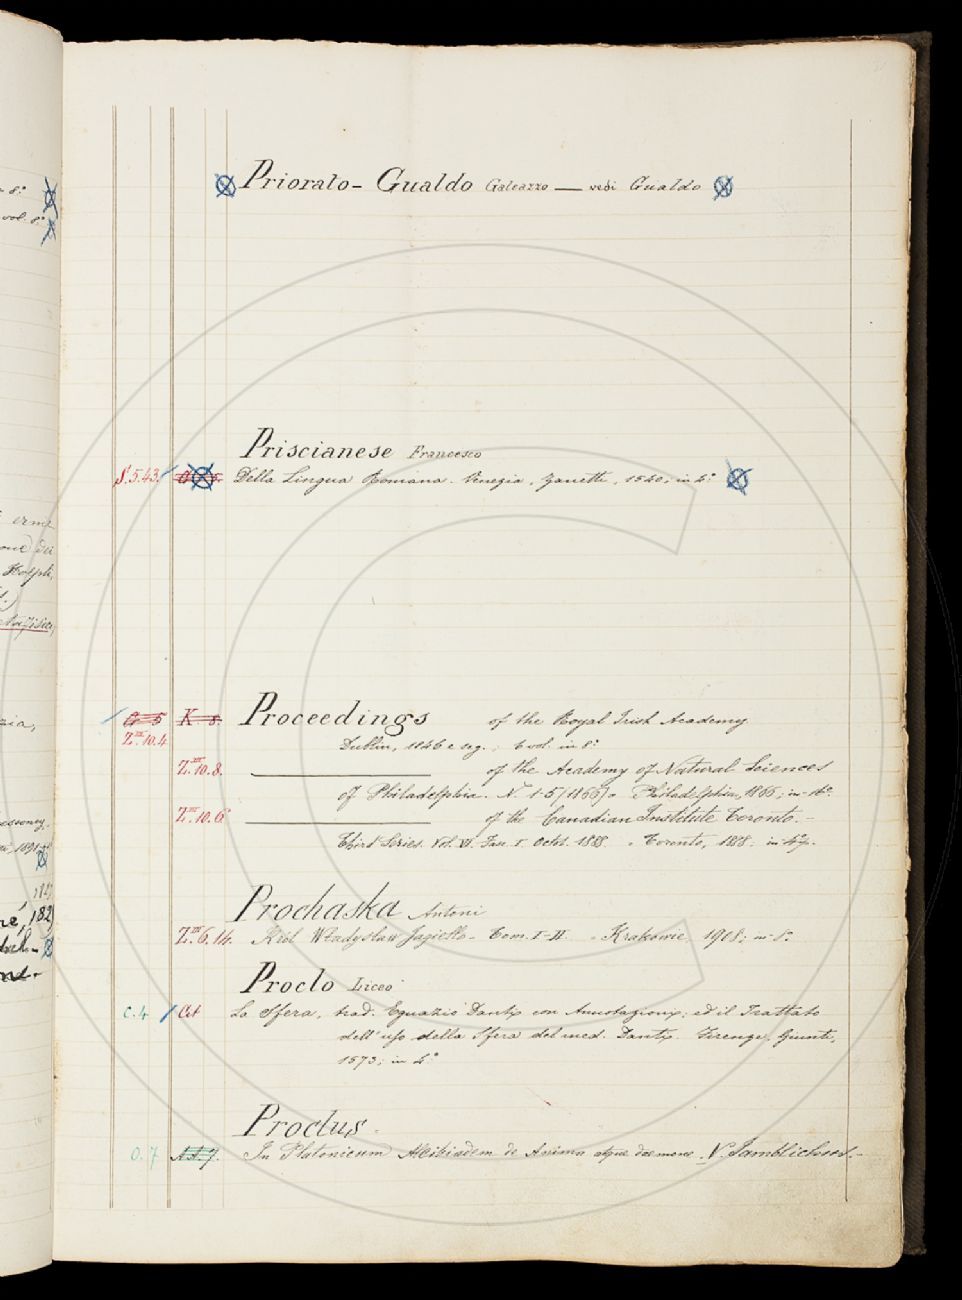 Priorato - Gualdo Galeazzo — vedi Gualdo
Priscianese Francesco
S.5.43. Della Lingua Romana. Venezia, Zanetti, 1540; in 4.°
G 5 K 8. Proceedings of the Royal Irish Academy
Z.III.10.4 Dublin, 1846 e seg.; 6 vol. in 8.°
Z.III.10.8. ——— of the Academy of Natural Sciences
of Philadelphia. N. 1-5 (1866). Philadelphia, 1866; in-8.°
Z.III.10.6 ——— of the Canadian Institute Toronto. -
Third Series. Vol. VI. Fas. I Octob. 1888. Toronto, 1888. in-8.°
Prochaska Antoni
Z.III.6.14. Król Władysław Jagiello - Tom. I-II. Krakowie, 1908; in-8.°
Proclo Liceo
C.4 Cit La Sfera, trad. Egnazio Danti, con Annotazioni; ed il Trattato
dell'uso della Sfera del med. Danti. Firenze, Giunti,
1573; in 4.°
Proclus -
O.7 In Platonicum Alcibiadem de Anima atque daemone. V. Jamblichus. -
vol. 8.°
zia,